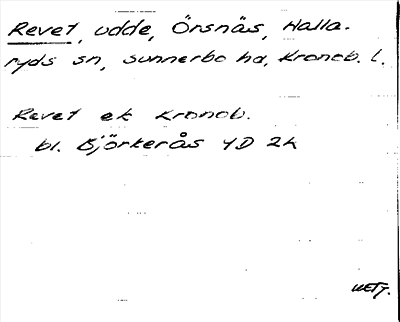 Revet, udde, Örsnäs, Halla-
ryds sn, Sunnerbo hd, Kronob. l.
Revet ek Kronob.
bl. Björkerås 4D 2k